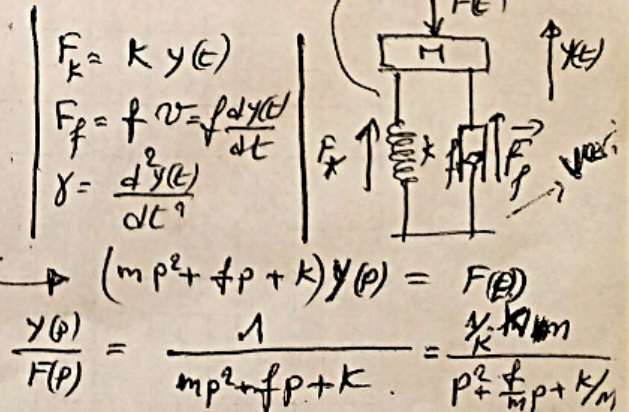 F_k = K y(t)
F_f = f v = f dy(t)/dt
γ = d²y(t)/dt²
F(t)
M
y(t)
F_k
k
f
F_f
(mp² + fp + k) Y(p) = F(p)
Y(p)/F(p) = 1/(mp² + fp + k) = /(p² + f/m p + k/m)